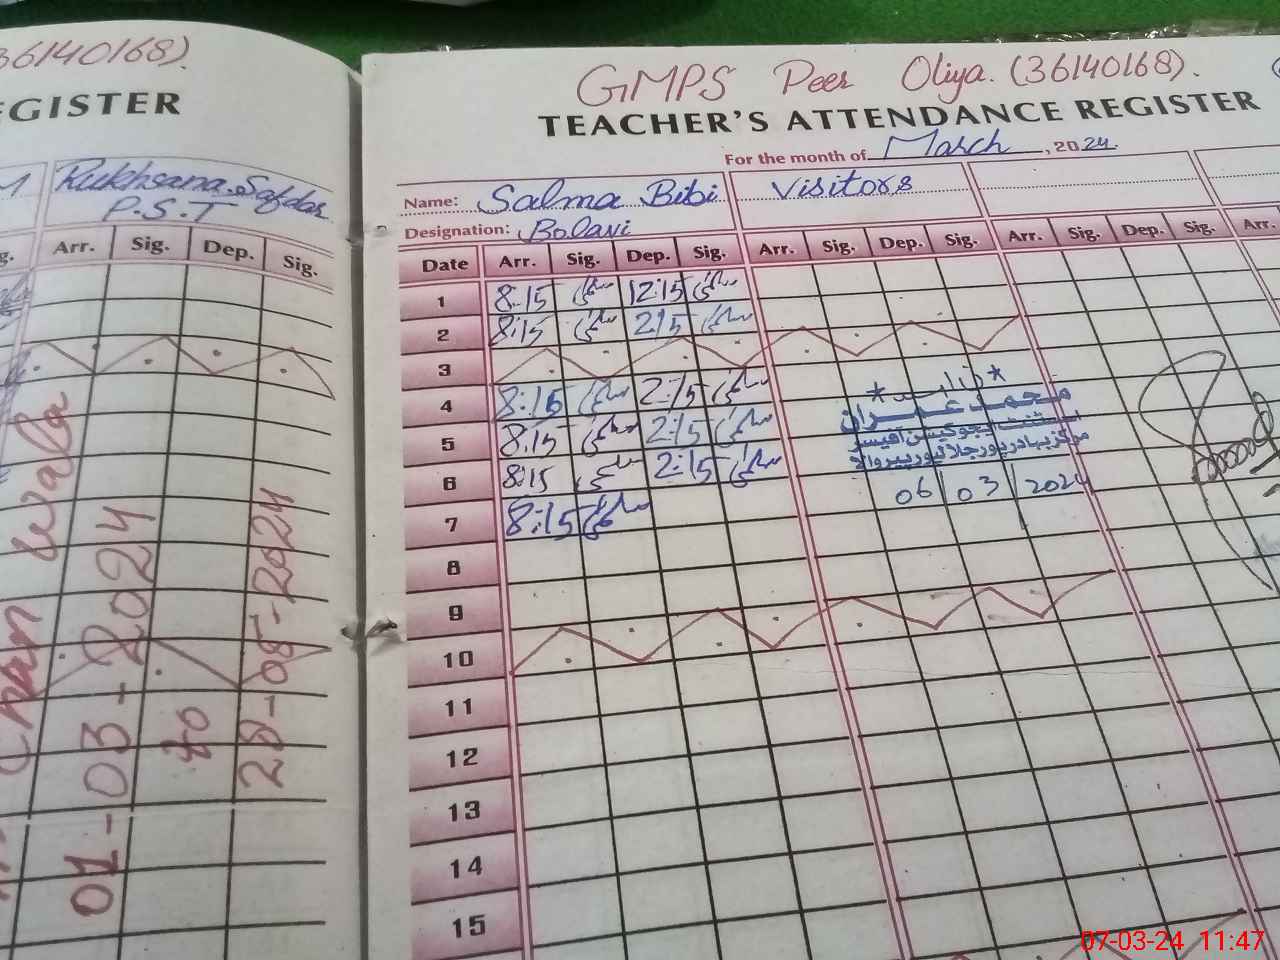 36140168).
EGISTER
Rukhsana Safdar
P.S.T
Arr. Sig. Dep. Sig.
wala
01-03-2024
to
28-05-2024
GMPS Peer Oliya. (36140168).
TEACHER'S ATTENDANCE REGISTER
For the month of March, 2024
Name: Salma Bibi Visitors
Designation: Bolavi
Date Arr. Sig. Dep. Sig. Arr. Sig. Dep. Sig. Arr. Sig. Dep. Sig. Arr.
1 8:15 12:15
2 8:15 2:15
3
4 8:15 2:15
محمد عمران
5 8:15 2:15
اسسٹنٹ ایجوکیشن آفیسر
6 8:15 2:15
مرکز بہادر پور جلالپور پیروالا
06/03/2024
7 8:15
8
9
10
11
12
13
14
15
07-03-24 11:47